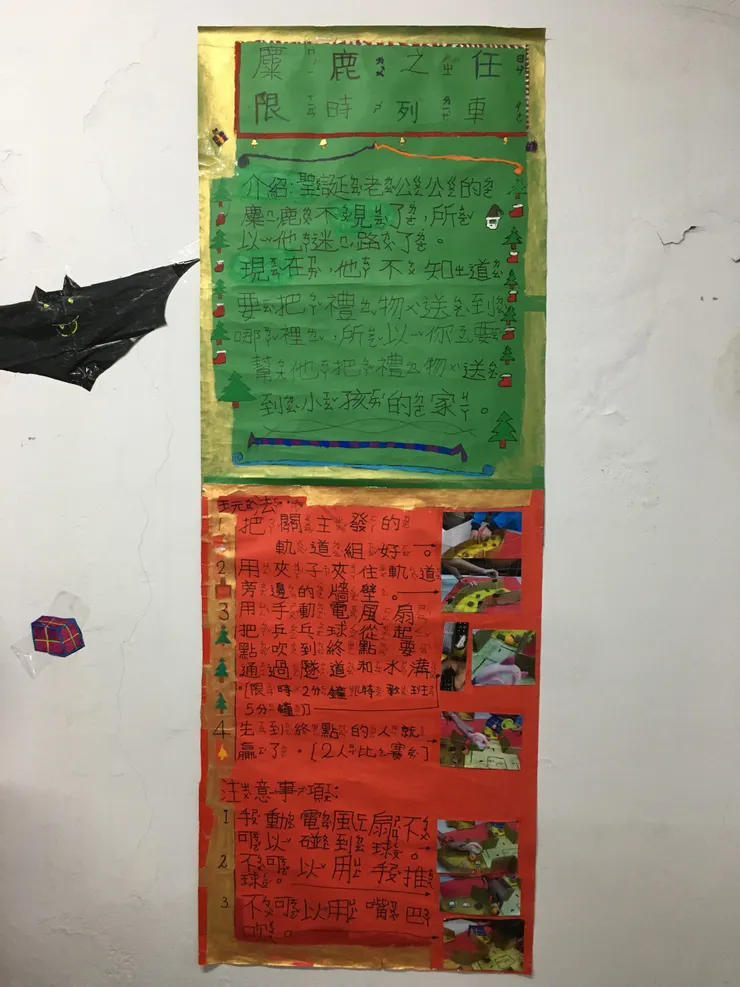 麋鹿之任
限時列車
介紹:聖誕老公公的
麋鹿不見了,所
以他謎路了。
現在,他不知道
要把禮物送到
哪裡,所以你要
幫他把禮物送
到小孩的家。
玩的法:
1 把關主發的
軌道組好。
2 用夾子夾住軌道
旁邊的牆壁。
3 用手動電風扇
把乒乓球從起
點吹到終點要
通過隧道和水溝
[限時2分鐘 班
5分鐘]
4 生到終點的人就
贏了。[2人比賽]
注意事項:
1 手動電風扇不
可以碰到球。
2 不可以用手推
球。
3 不可以用嘴巴
吹。